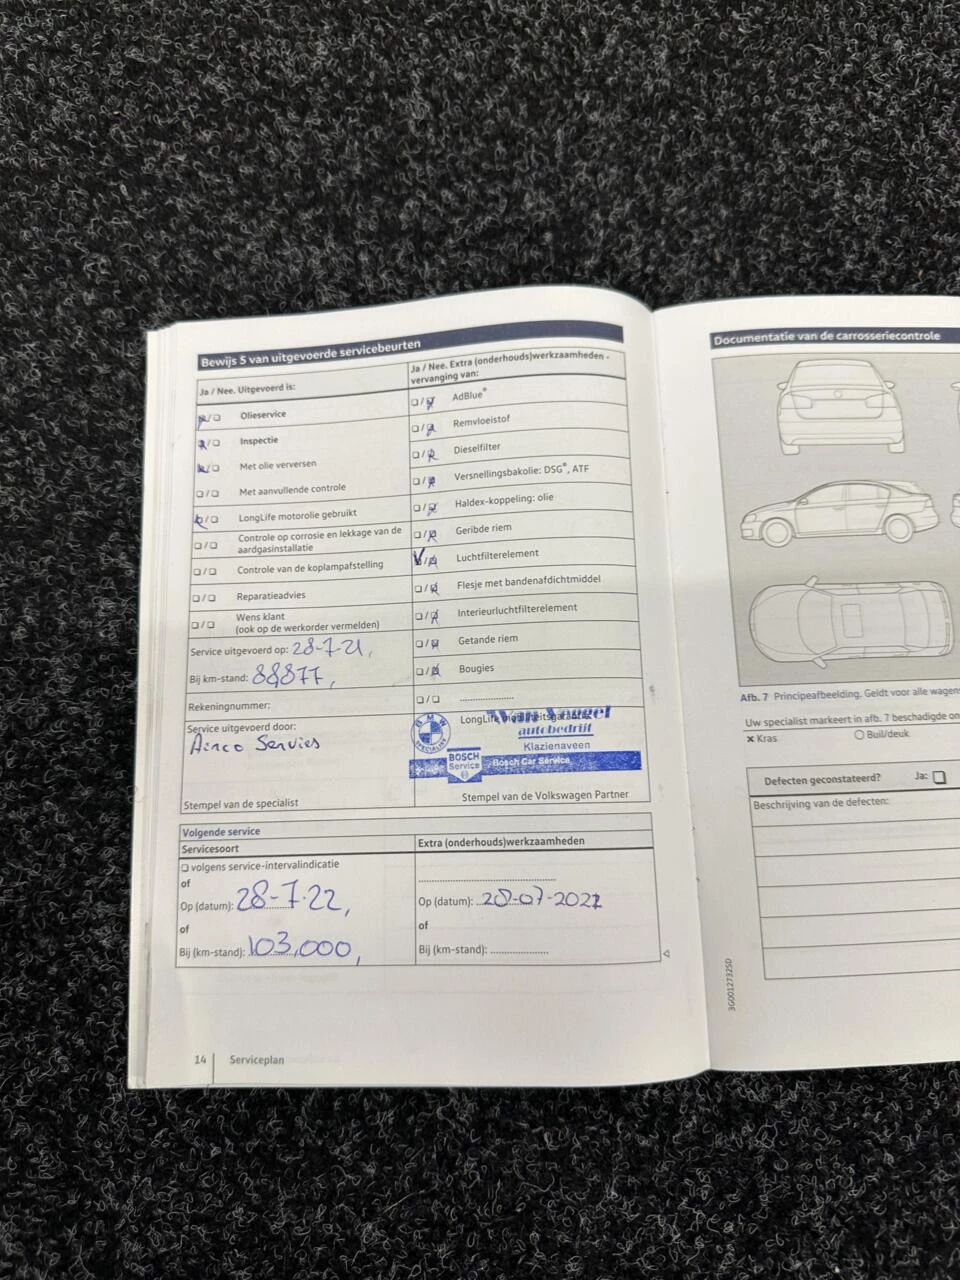 Bewijs 5 van uitgevoerde servicebeurten
Ja / Nee. Uitgevoerd is:
Olieservice
Inspectie
Met olie verversen
Met aanvullende controle
LongLife motorolie gebruikt
Controle op corrosie en lekkage van de
aardgasinstallatie
Controle van de koplampafstelling
Reparatieadvies
Wens klant
(ook op de werkorder vermelden)
Service uitgevoerd op: 28-7-21,
Bij km-stand: 88877,
Rekeningnummer:
Service uitgevoerd door:
Airco Servies
Stempel van de specialist
Ja / Nee. Extra (onderhouds)werkzaamheden -
vervanging van:
AdBlue®
Remvloeistof
Dieselfilter
Versnellingsbakolie: DSG®, ATF
Haldex-koppeling: olie
Geribde riem
Luchtfilterelement
Flesje met bandenafdichtmiddel
Interieurluchtfilterelement
Getande riem
Bougies
LongLife mobiliteitsgarantie
BMW
SPECIALIST
autobedrijf
Klazienaveen
BOSCH
Service
Bosch Car Service
Stempel van de Volkswagen Partner
Volgende service
Servicesoort
volgens service-intervalindicatie
of
Op (datum): 28-7-22,
of
Bij (km-stand): 103,000,
Extra (onderhouds)werkzaamheden
Op (datum): 28-07-2022
of
Bij (km-stand):
14
Serviceplan
Documentatie van de carrosseriecontrole
Afb. 7 Principeafbeelding. Geldt voor alle wagens
Uw specialist markeert in afb. 7 beschadigde on
× Kras
Buil/deuk
Defecten geconstateerd? Ja:
Beschrijving van de defecten:
3G0012732SD